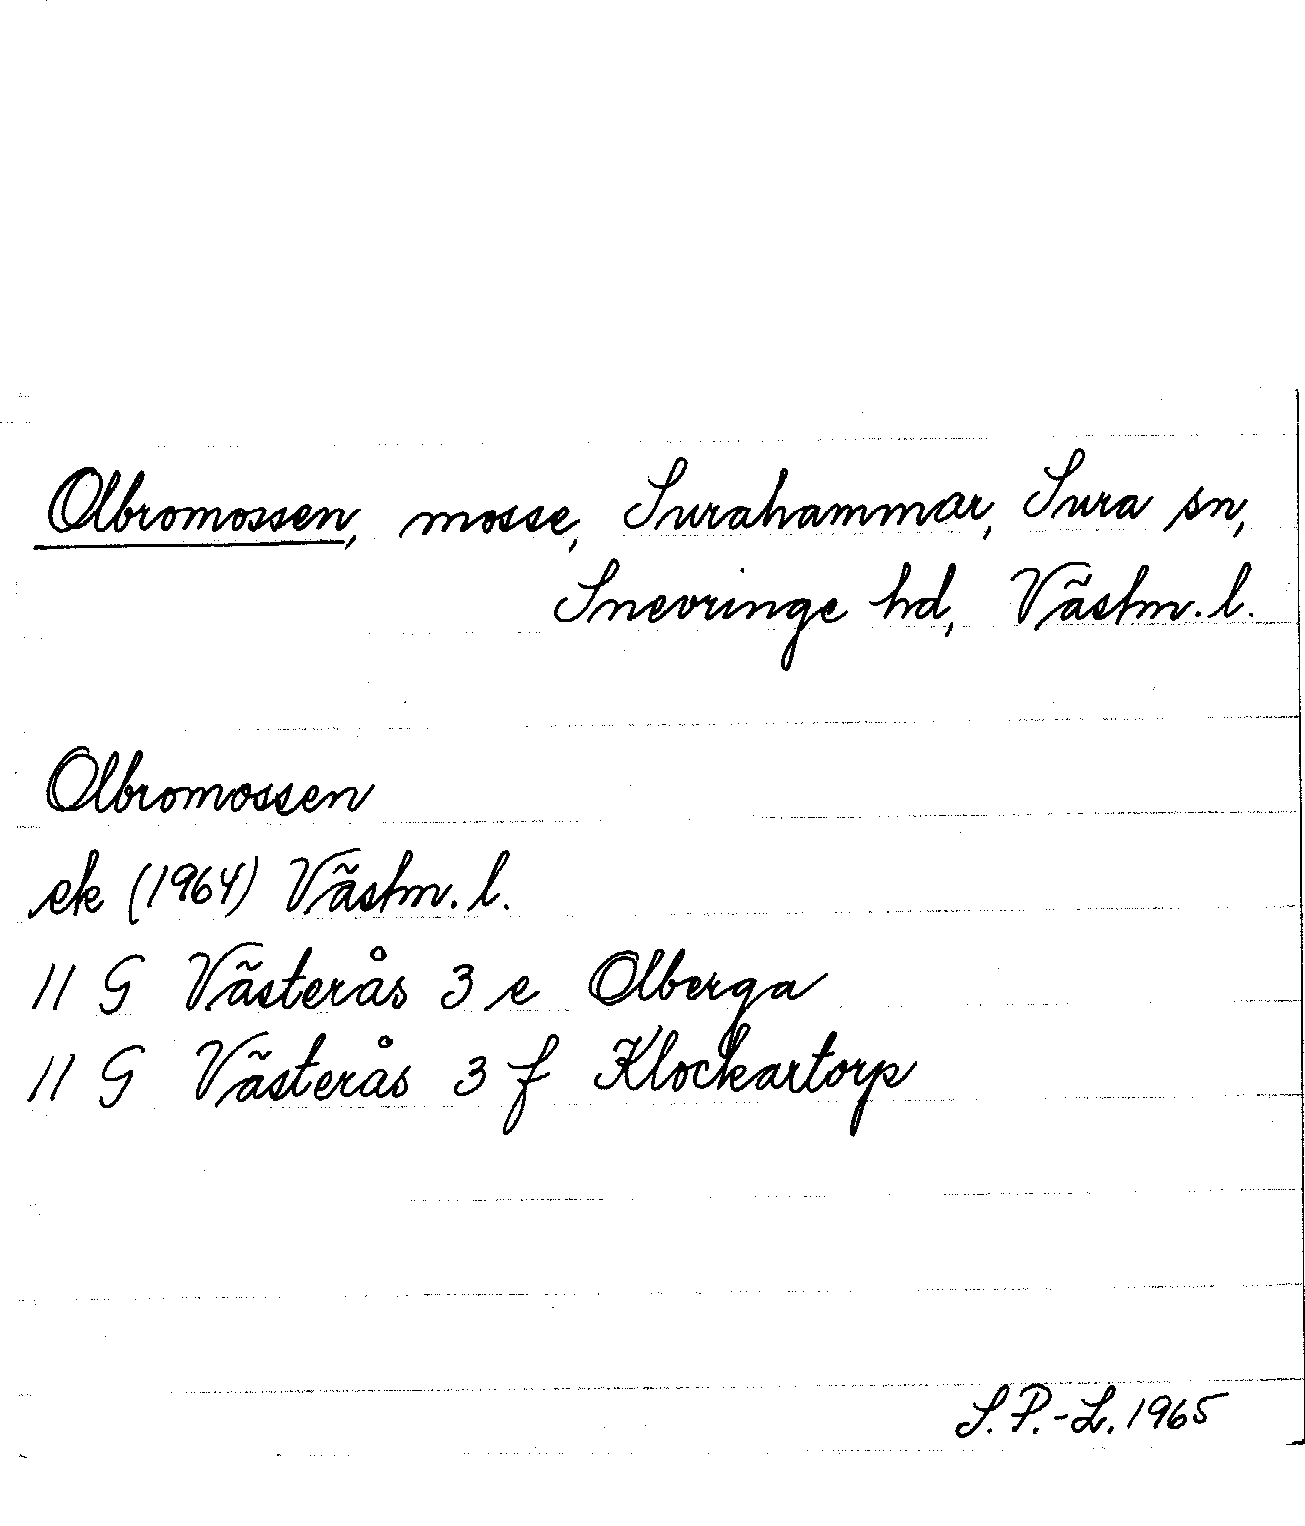 Olbromossen, mosse, Surahammar, Sura sn,
Snevringe hd, Västm. l.
Olbromossen
ek (1964) Västm. l.
11 G Västerås 3 e Olberga
11 G Västerås 3 f Klockartorp
S. P.-L. 1965